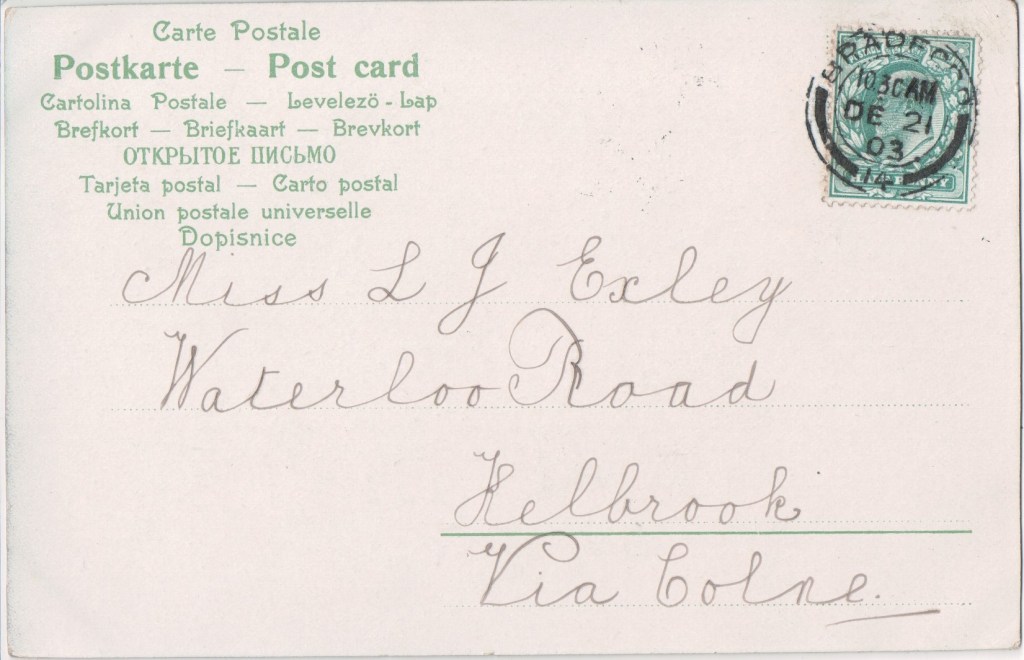 Carte Postale
Postkarte — Post card
Cartolina Postale — Levelezö - Lap
Brefkort — Briefkaart — Brevkort
ОТКРЫТОЕ ПИСЬМО
Tarjeta postal — Carto postal
Union postale universelle
Dopisnice
BRADFORD
10 30 AM
DE 21
03
14
PENNY
Miss L J Exley
Waterloo Road
Kelbrook
Via Colne.